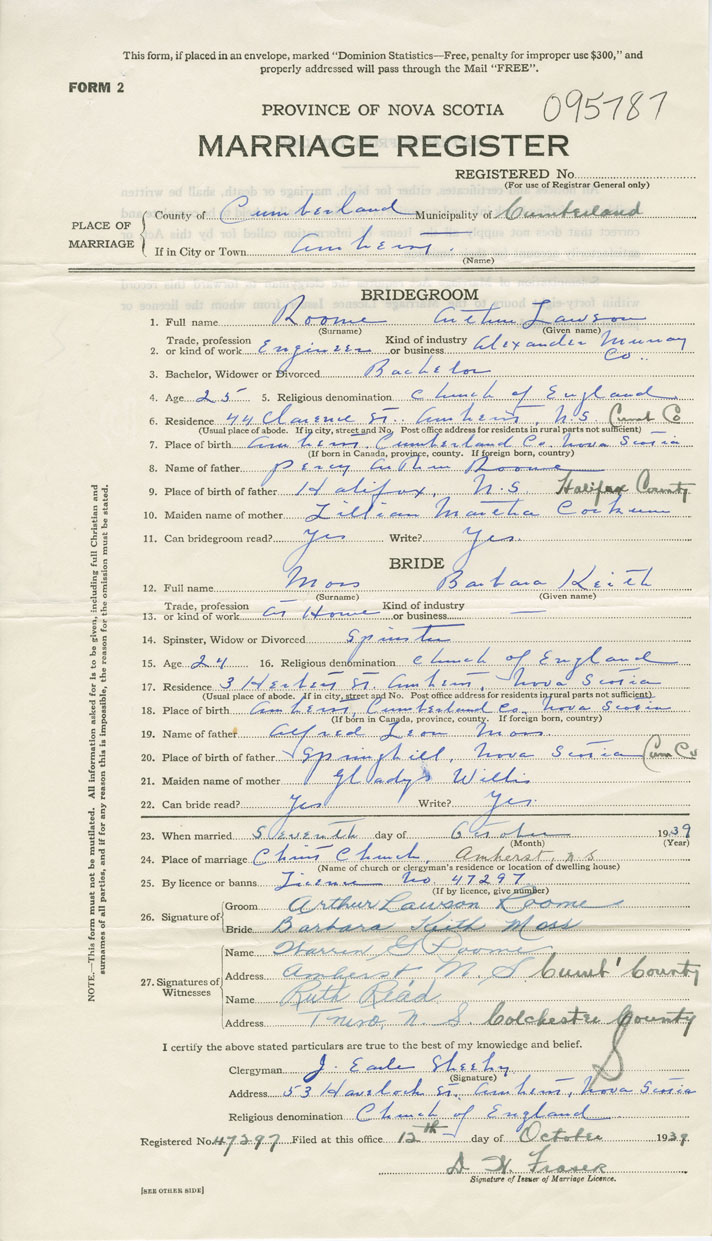 This form, if placed in an envelope, marked "Dominion Statistics—Free, penalty for improper use $300," and
properly addressed will pass through the Mail "FREE".
FORM 2
PROVINCE OF NOVA SCOTIA 095787
MARRIAGE REGISTER
REGISTERED No.
(For use of Registrar General only)
PLACE OF MARRIAGE
County of Cumberland Municipality of Cumberland
If in City or Town Amherst.
(Name)
BRIDEGROOM
1. Full name Roome Arthur Lawson
(Surname) (Given name)
2. Trade, profession or kind of work Engineer Kind of industry or business Alexander Murray Co..
3. Bachelor, Widower or Divorced Bachelor
4. Age 25 5. Religious denomination Church of England
6. Residence 44 Clarence St. Amherst, N.S. Cumb Co
(Usual place of abode. If in city, street and No. Post office address for residents in rural parts not sufficient)
7. Place of birth Amherst, Cumberland Co. Nova Scotia
(If born in Canada, province, county. If foreign born, country)
8. Name of father Percy Arthur Roome
9. Place of birth of father Halifax, N.S Halifax County
10. Maiden name of mother Lillian Martha
11. Can bridegroom read? Yes Write? Yes.
BRIDE
12. Full name Moss Barbara Keith
(Surname) (Given name)
13. Trade, profession or kind of work At Home Kind of industry or business —
14. Spinster, Widow or Divorced Spinster
15. Age 24 16. Religious denomination Church of England
17. Residence 3 Herbert St. Amherst, Nova Scotia
(Usual place of abode. If in city, street and No. Post office address for residents in rural parts not sufficient)
18. Place of birth Amherst, Cumberland Co. Nova Scotia
(If born in Canada, province, county. If foreign born, country)
19. Name of father Alfred Leon Moss
20. Place of birth of father Springhill, Nova Scotia Cum Co
21. Maiden name of mother Gladys Willis
22. Can bride read? Yes Write? Yes.
23. When married Seventh day of October 1939
(Month) (Year)
24. Place of marriage Christ Church, Amherst, N.S
(Name of church or clergyman's residence or location of dwelling house)
25. By licence or banns Licence No 47297
(If by licence, give number)
26. Signature of
Groom Arthur Lawson Roome
Bride Barbara Keith Moss
27. Signatures of Witnesses
Name Warren G Roome
Address Amherst N. S Cumb' County
Name Ruth Read
Address Truro, N. S. Colchester County
I certify the above stated particulars are true to the best of my knowledge and belief.
Clergyman J. Earle Sheehy
(Signature)
Address 53 Havelock St. Amherst, Nova Scotia
Religious denomination Church of England
Registered No. 47297 Filed at this office 12th day of October 1939.
D. H. Fraser
Signature of Issuer of Marriage Licence.
[SEE OTHER SIDE]
NOTE.—This form must not be mutilated. All information asked for is to be given, including full Christian and
surnames of all parties, and if for any reason this is impossible, the reason for the omission must be stated.